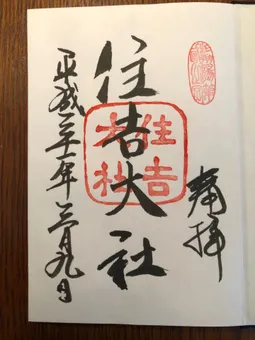 奉拝
住吉大社
住吉
大社
平成三十一年三月九日